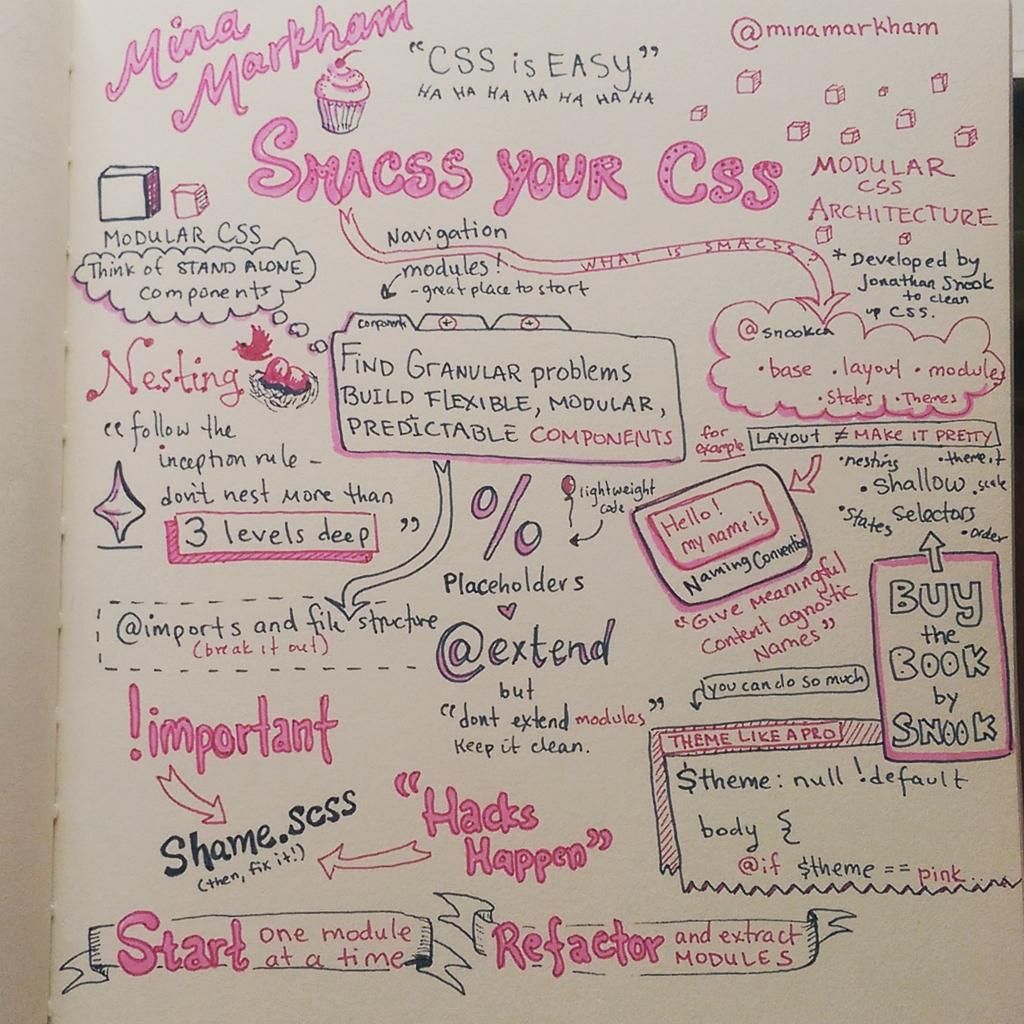 Mina
Markham
"CSS is EASY"
HA HA HA HA HA HA HA
@minamarkham
SMACSS YOUR CSS
MODULAR
CSS
ARCHITECTURE
MODULAR CSS
Think of STAND ALONE
components
Navigation
modules!
- great place to start
WHAT IS SMACSS?
* Developed by
Jonathan Snook
to clean
up CSS.
@snookca
• base • layout • modules
• States • Themes
Nesting
"follow the
inception rule -
don't nest more than
3 levels deep"
components
FIND GRANULAR problems
BUILD FLEXIBLE, MODULAR,
PREDICTABLE COMPONENTS
for
example
LAYOUT ≠ MAKE IT PRETTY
• nesting
• theme it
• Shallow
• scale
Selectors
• States
• order
%
lightweight
code
Placeholders
@extend
but
"dont extend modules"
Keep it clean.
Hello!
my name is
Naming Convention
"Give meaningful
Content agnostic
Names"
BUY
the
BOOK
by
SNOOK
@imports and file structure
(break it out)
!important
Shame.scss
(then, fix it!)
"Hacks
Happen"
you can do so much
THEME LIKE A PRO!
$theme: null !default
body {
@if $theme == pink...
Start one module
at a time
Refactor and extract
MODULES